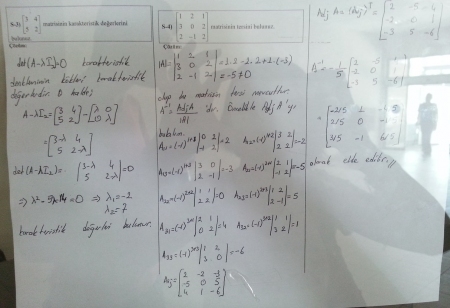 S-3) [3 4
5 2] matrisinin karakteristik değerlerini
bulunuz.
Çözüm:
det(A-λI₂)=0 karakteristik
denkleminin kökleri karakteristik
değerlerdir.
A-λI₂=[3 4
5 2]-[λ 0
0 λ]
=[3-λ 4
5 2-λ]
det(A-λI₂)=|3-λ 4
5 2-λ|=0
⇒ λ²-5λ-14=0 ⇒ λ₁=-2
λ₂=7
karakteristik değerleri bulunur.
S-4) [1 2 1
3 0 2
2 -1 2] matrisinin tersini bulunuz.
Çözüm:
|A|=|1 2 1
3 0 2
2 -1 2|
=-5≠0
olup bu matrisin tersi mevcuttur.
A⁻¹=AdjA/|A| 'dır. Öncelikle Adj A'yı
bulalım.
A₁₁=(-1)¹⁺¹|0 2
-1 2|=2 A₁₂=(-1)¹⁺²|3 2
2 2|=-2
A₁₃=(-1)¹⁺³|3 0
2 -1|=-3 A₂₁=(-1)²⁺¹|2 1
-1 2|=-5
A₂₂=(-1)²⁺²|1 1
2 2|=0 A₂₃=(-1)²⁺³|1 2
2 -1|=5
A₃₁=(-1)³⁺¹|2 1
0 2|=4 A₃₂=(-1)³⁺²|1 1
3 2|=1
A₃₃=(-1)³⁺³|1 2
3 0|=-6
Aij=[2 -2 -3
-5 0 5
4 1 -6]
Adj A=(Aij)ᵀ=[2 -5 4
-2 0 1
-3 5 -6]
A⁻¹=-1/5[2 -5 4
-2 0 1
-3 5 -6]
=[-2/5 1 -4/5
2/5 0 -1/5
3/5 -1 6/5]
olarak elde edilir.